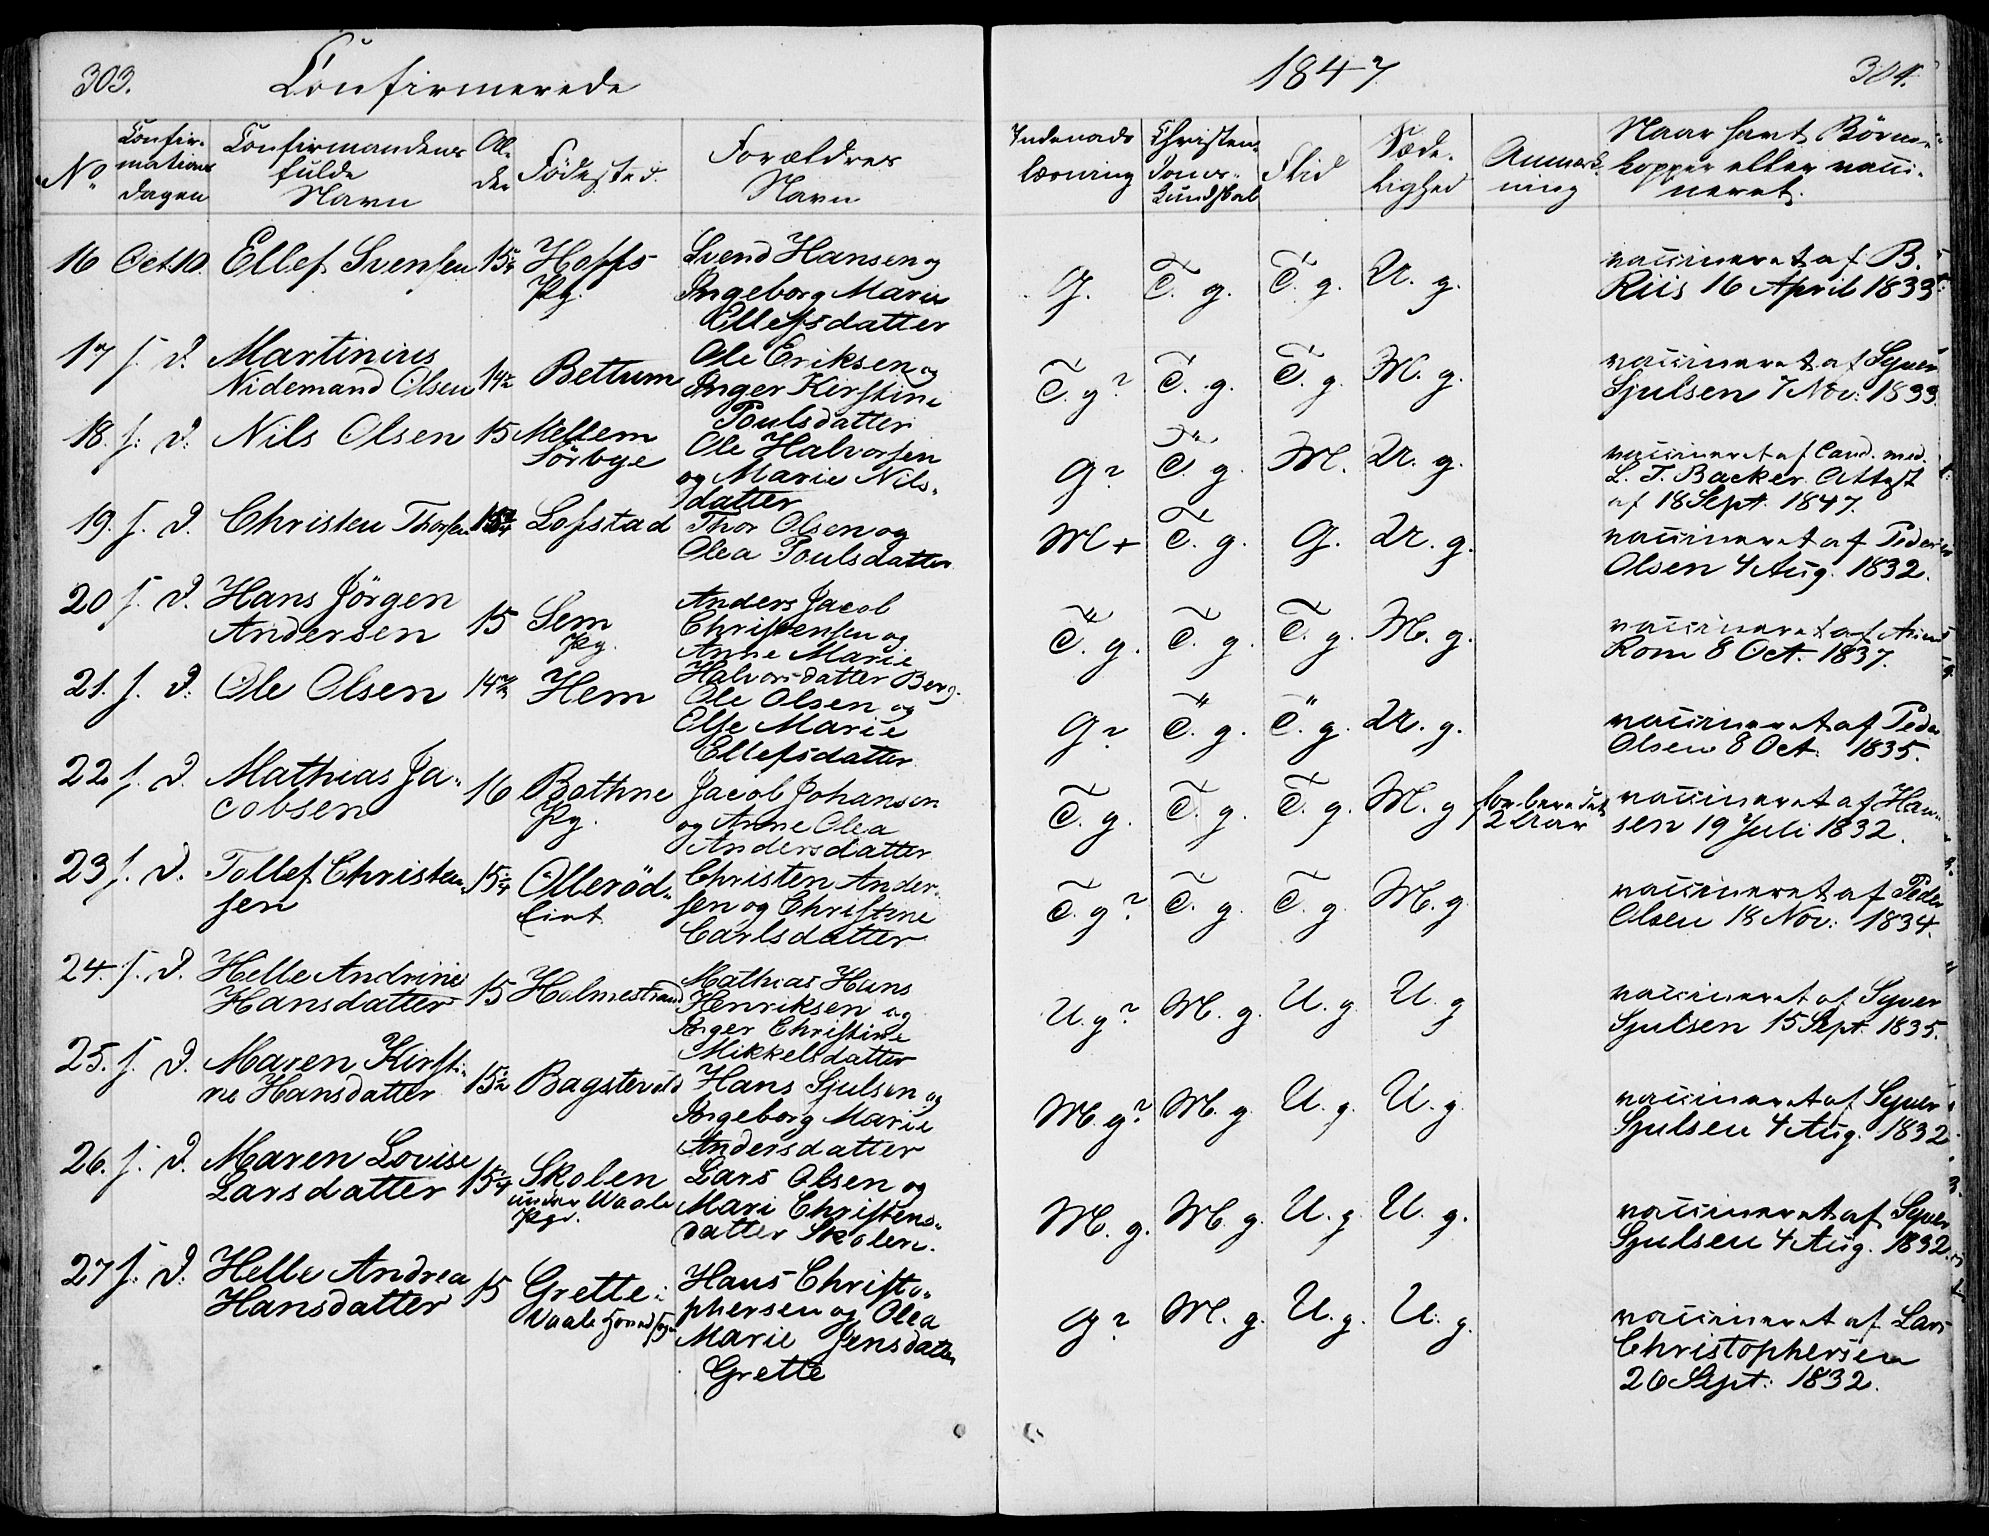 303.
Confirmerede
1847
304.
No
Confir-
mations
dagen
Confirmandens
fulde
Navn
Al-
der
Födested.
Forældres
Navn
Indenads
læsning
Christen-
doms-
kundskab
Flid
Sæde-
lighed
Anmærk-
ning
Naar havt Börne-
kopper eller vacci-
neret.
16 Oct. 10. Ellef Svensen 15¼ Hoffs
Pg.
Svend Hansen og
Ingeborg Marie
Ellefsdatter
G. T. g. T. g. U. g.
vaccineret af B.
Riis 16 April 1833
17 s. D. Martinius
Nidemand Olsen 14½ Bettum
Ole Eriksen og
Inger Kirstine
Poulsdatter
T. g? T. g. T. g. M. g.
vaccineret af Syver
Sjulsen 7 Nov: 1833.
18. s. D. Nils Olsen 15 Mellem
Sörbye
Ole Halvorsen
og Marie Nils-
datter
G? T. g. M. U. g.
vaccineret af Cand. med.
L. T. Backer Attest
af 18 Sept. 1847.
19. s. D. Christen Thorsen Lofstad
Thor Olsen og
Olea Poulsdatter
M+ T. g. G. U. g.
vaccineret af Peder
Olsen 4 Aug. 1832.
20 s. D. Hans Jörgen
Andersen 15 Sem
Pg.
Anders Jacob
Christensen og
Anne Marie
Halvorsdatter Berg.
T. g. T. g. T. g. M. g.
vaccineret af
Rom 8 Oct. 1837.
21. s. D. Ole Olsen 14½ Hem
Ole Olsen og
Else Marie
Ellefsdatter
G? T. g. T. g. U. g.
vaccineret af Peder
Olsen 8 Oct. 1835.
22 s. D. Mathias Ja-
cobsen 16 Bothne
Pg.
Jacob Johansen
og Anne Olea
Andersdatter
T. g. T. g. T. g. M. g forberedet
2 Aar
vaccineret af Han-
sen 19 Juli 1832.
23 s. D. Tollef Christen-
sen 15¼ Olleröd-
eiet
Christen Ander-
sen og Christine
Carlsdatter
T. g? T. g. T. g. M. g.
vaccineret af Peder
Olsen 18 Nov: 1834.
24. s. D. Helle Andrine
Hansdatter 15 Holmestrand
Mathias Hans
Henriksen og
Inger Christine
Mikkelsdatter
U. g? M. g. U. g. U. g
vaccineret af Syver
Sjulsen 15 Sept. 1835.
25. s. D. Maren Kirsti-
ne Hansdatter 15½
Hans Sjulsen og
Ingeborg Marie
Andersdatter
M. g? M. g U. g. U. g.
vaccineret af Syver
Sjulsen 4 Aug. 1832
26. s. D. Maren Lovise
Larsdatter 15¼ Skolen
under Waale
Pgd.
Lars Olsen og
Mari Christens-
datter Skolen.
M. g. M. g. U. g. U. g.
vaccineret af Syver
Sjulsen 4 Aug. 1832.
27 s. D. Helle Andrea
Hansdatter 15 Grette i
Waale
Hans Christo-
phersen og Olea
Marie Jensdatter
Grette
G? M. g. U. g. U. g.
vaccineret af Lars
Christophersen
26 Sept: 1832.